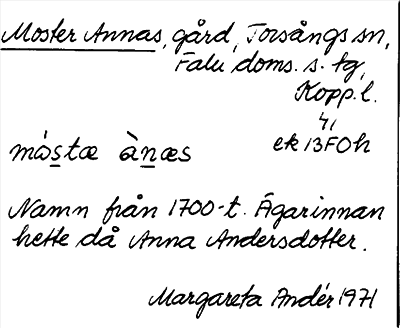 Moster Annas, gård, Torsångs sn,
Falu doms. s. tg,
Kopp. l.
41
måstæ ànæs ek 13F0h
Namn från 1700-t. Ägarinnan
hette då Anna Andersdotter.
Margareta Andér 1971